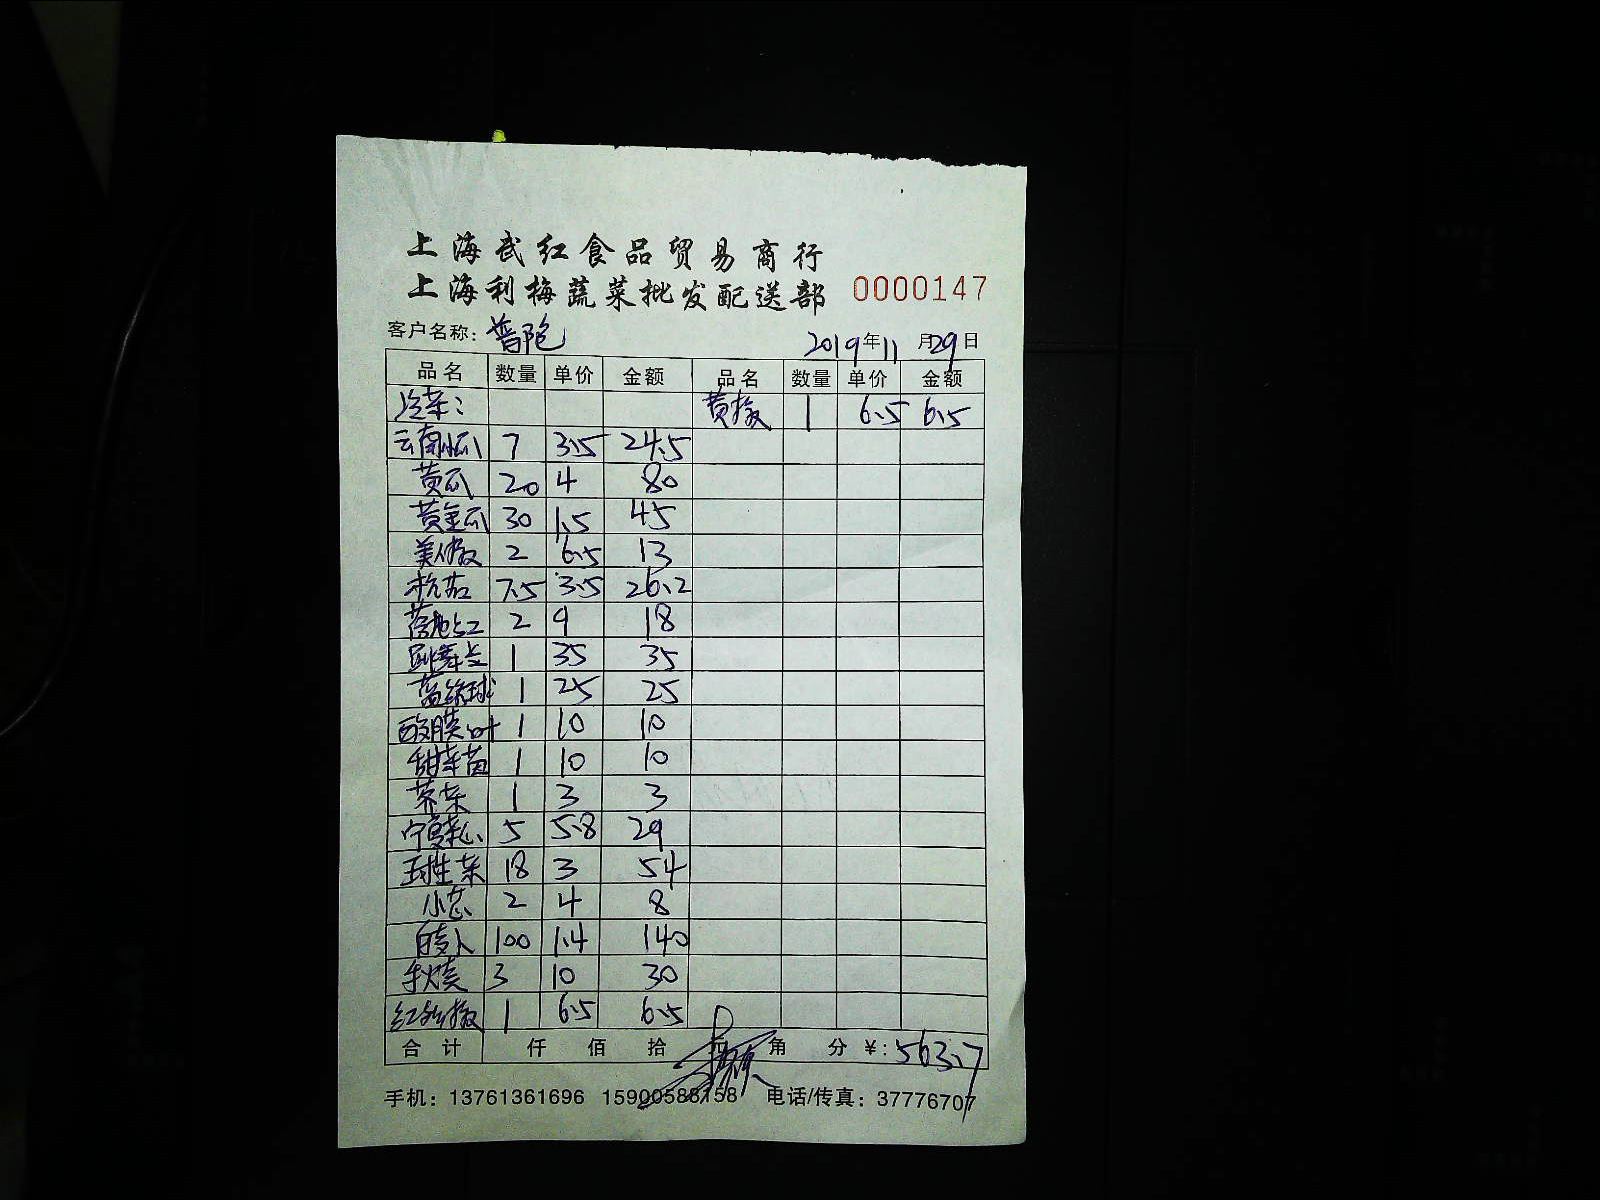 上海武红食品贸易商行
上海利梅蔬菜批发配送部 0000147
客户名称：普陀 2019年11月29日
品名 数量 单价 金额 品名 数量 单价 金额
冷菜： 黄椒 1 6.5 6.5
云南小瓜 7 3.5 24.5
黄瓜 20 4 80
黄金瓜 30 1.5 45
美人椒 2 6.5 13
杭茄 7.5 3.5 26.2
落地红 2 9 18
跳舞兰 1 35 35
1 25 25
酸膜叶 1 10 10
甜菜苗 1 10 10
茶菜 1 3 3
宁夏菜心 5 5.8 29
球生菜 18 3 54
小芯 2 4 8
白萝卜 100 1.4 140
秋葵 3 10 30
红彩椒 1 6.5 6.5
合计 仟 佰 拾 元 角 分 ￥：563.7
手机：13761361696 15900588158 电话/传真：37776707